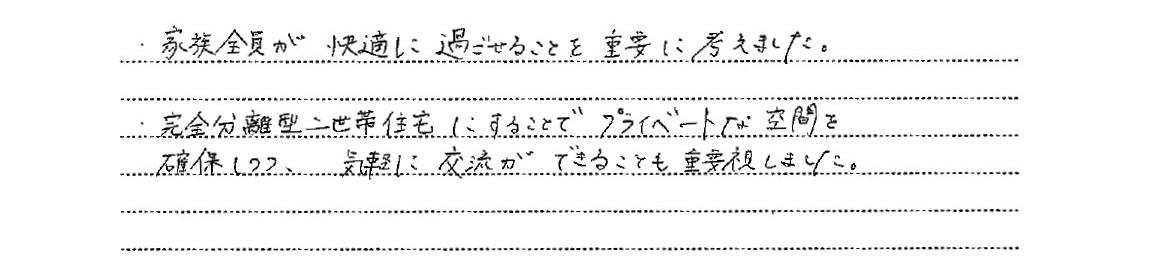 ・家族全員が 快適に 過ごせることを 重要に 考えました。
・完全分離型二世帯住宅にすることで プライベートな 空間を
確保しつつ、 気軽に 交流が できることも重要視しました。